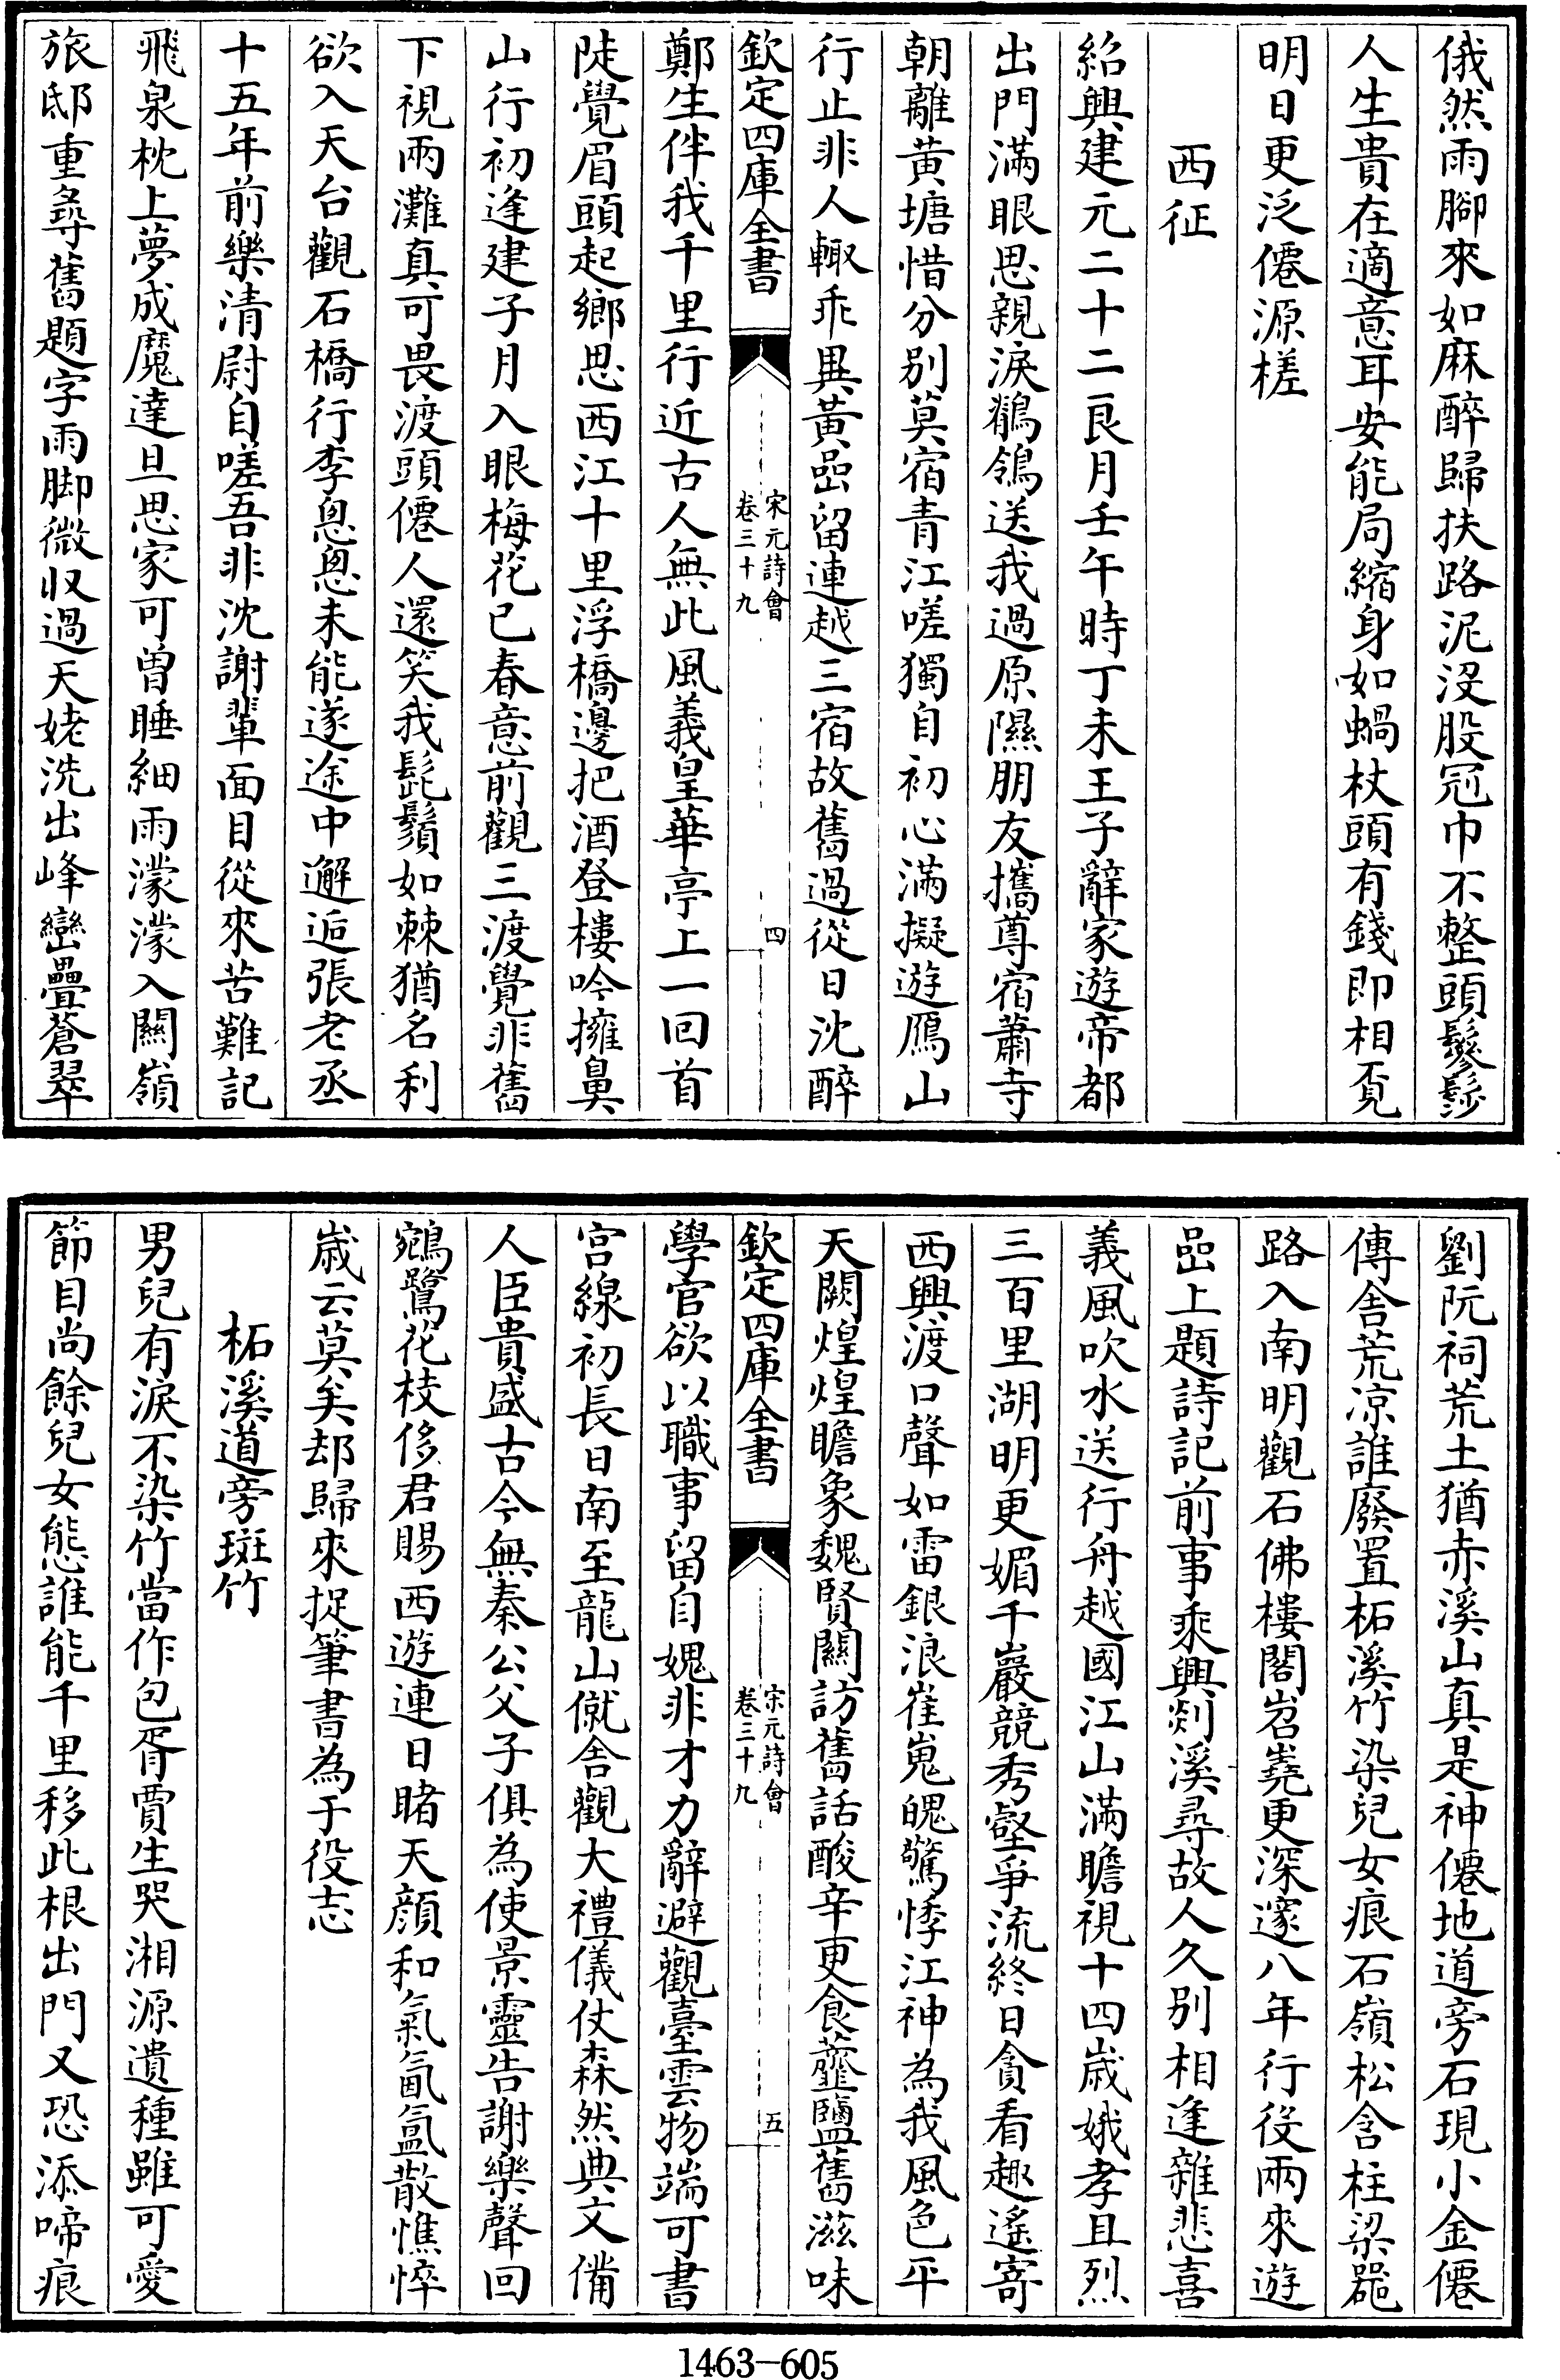 俄然雨腳來如麻醉歸扶路泥没股冠巾不整頭鬖髿
人生貴在適意耳安能局縮身如蝸杖頭有錢即相覔
明日更泛僊源槎
西征
紹興建元二十二艮月壬午時丁未王子辭家遊帝都
出門滿眼思親淚鶺鴒送我過原隰朋友攜尊宿蕭寺
朝離黄塘惜分别莫宿青江嗟獨自初心滿擬遊鴈山
行止非人輙乖異黃嵒留連越三宿故舊過從日沈醉
欽定四庫全書
宋元詩會
卷三十九
四
鄭生伴我千里行近古人無此風義皇華亭上一回首
陡覺眉頭起鄉思西江十里浮橋邊把酒登樓吟擁鼻
山行初逢建子月入眼梅花已春意前觀三渡覺非舊
下視兩灘真可畏渡頭僊人還笑我髭鬚如棘猶名利
欲入天台觀石橋行李悤悤未能遂途中邂逅張老丞
十五年前樂清尉自嗟吾非沈謝輩面目從來苦難記
飛泉枕上夢成魔達旦思家可曾睡細雨濛濛入關嶺
旅邸重尋舊題字雨脚微収過天姥洗出峰巒疊蒼翠
劉阮祠荒土猶赤溪山真是神僊地道旁石現小金僊
傳舎荒凉誰廢置柘溪竹染兒女痕石嶺松含柱梁器
路入南明觀石佛樓閣岧嶤更深邃八年行役兩來遊
嵒上題詩記前事乘興剡溪尋故人久别相逢雜悲喜
義風吹水送行舟越國江山滿瞻視十四歲娥孝且烈
三百里湖明更媚千巖競秀壑爭流終日貪看趣遙寄
西興渡口聲如雷銀浪崔嵬魄驚悸江神為我風色平
天闕煌煌瞻象魏賢關訪舊話酸辛更食虀鹽舊滋味
欽定四庫全書
宋元詩會
卷三十九
五
學官欲以職事留自媿非才力辭避觀臺雲物端可書
宮線初長日南至龍山僦舎觀大禮儀仗森然典文備
人臣貴盛古今無秦公父子俱為使景靈告謝樂聲回
鵷鷺花枝侈君賜西遊連日睹天顔和氣氤氳散憔悴
歲云莫矣却歸來捉筆書為于役志
柘溪道旁斑竹
男兒有淚不染竹當作包胥賈生哭湘源遺種雖可愛
節目尚餘兒女態誰能千里移此根出門又恐添啼痕
1463-605